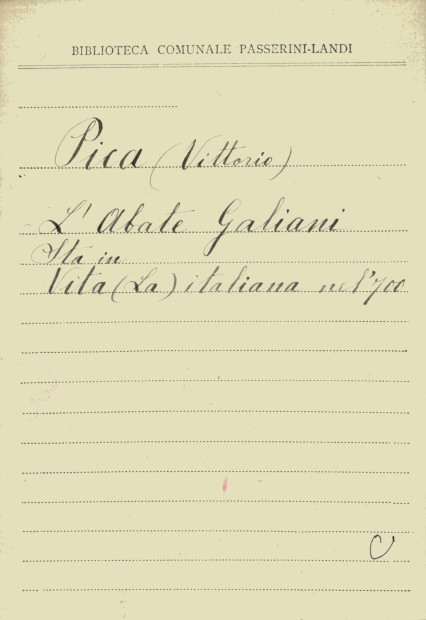 BIBLIOTECA COMUNALE PASSERINI-LANDI
Pica (Vittorio)
L'Abate Galiani
Sta in
Vita (La) italiana nel '700
C